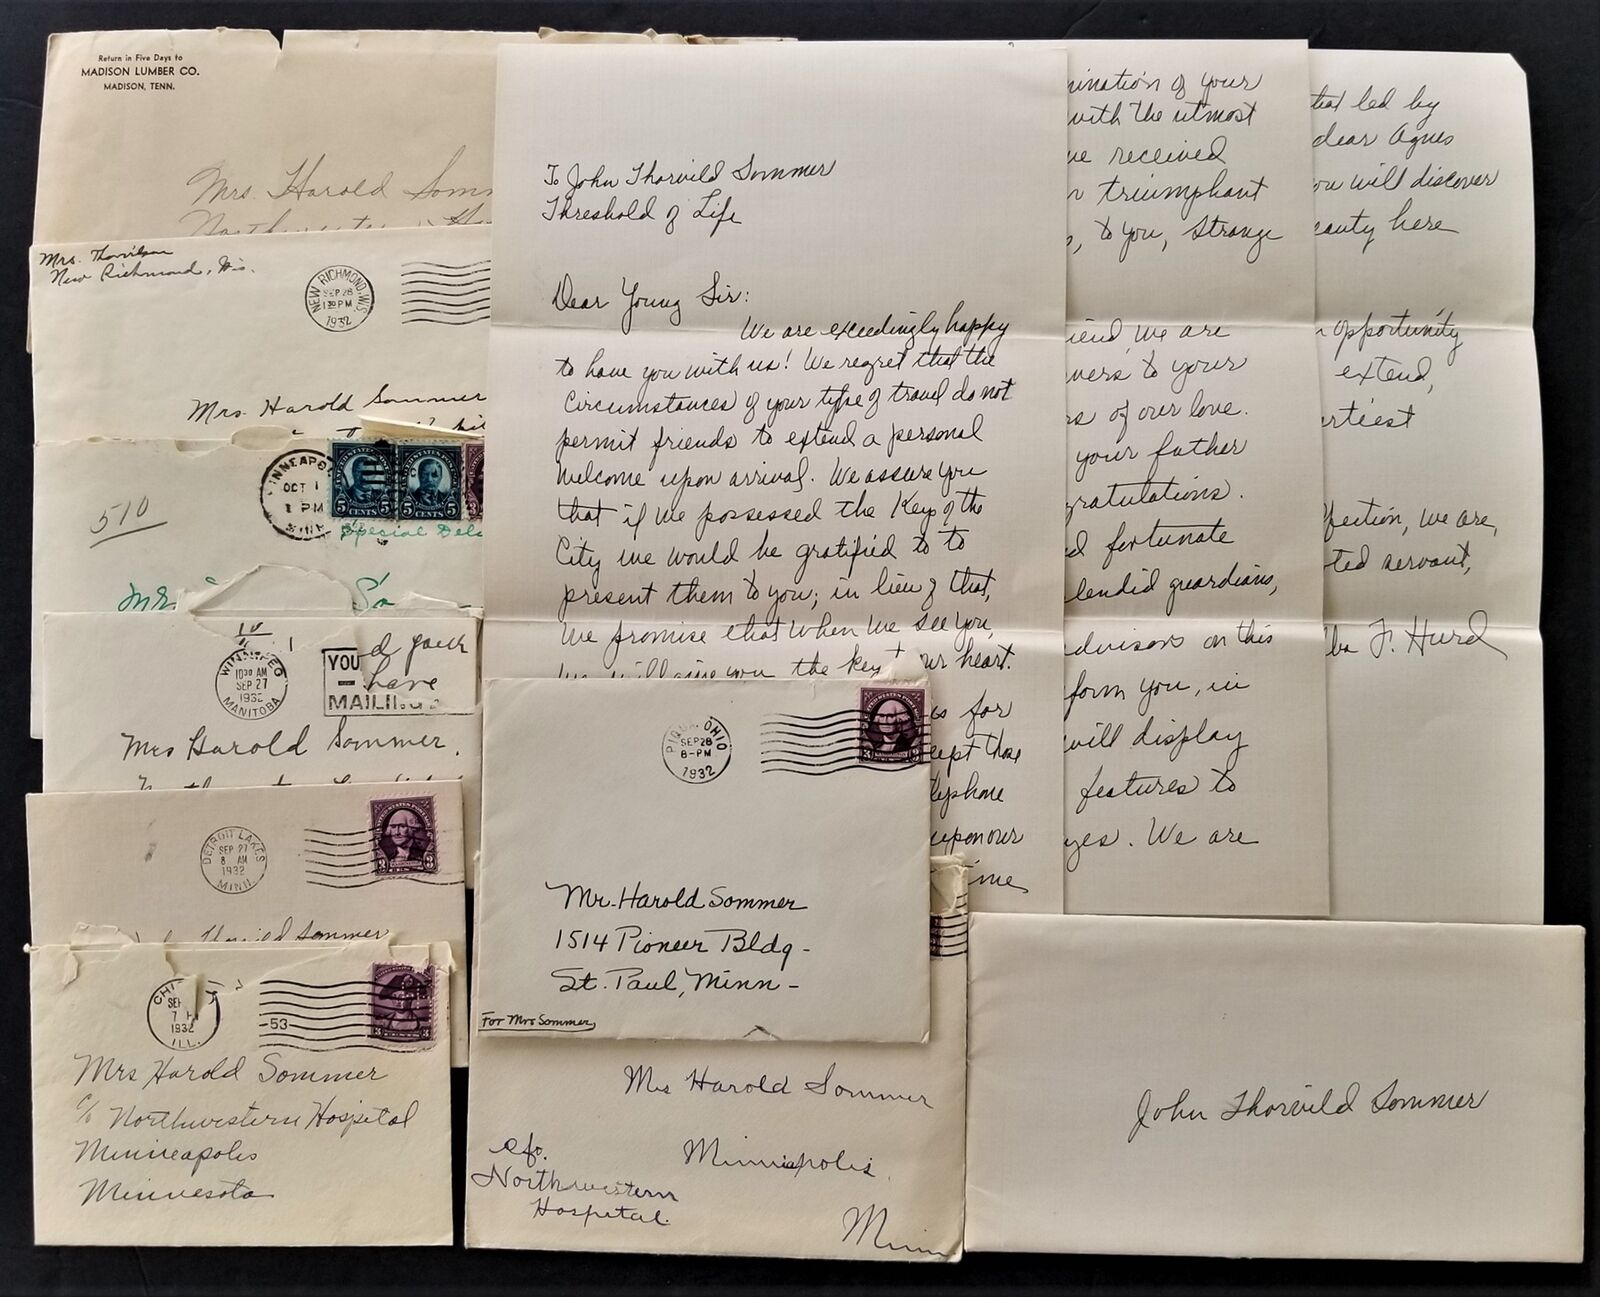 Return in Five Days to
MADISON LUMBER CO.
MADISON, TENN.
Mrs. Harold Somm
Mrs. Thorvilson
New Richmond, Wis.
NEW RICHMOND, WIS.
SEP 28
1 30 PM
1932
Mrs. Harold Sommer
510
MINNEAPO
OCT 1
1 PM
MINN
UNITED STATES POSTAGE
5 CENTS 5
5 CENTS 5
Special Deli
Mr
So
WINNIPEG
10 30 AM
SEP 27
1932
MANITOBA
YOU
have
MAILING
Mrs Harold Sommer.
DETROIT LAKES
SEP 27
8 AM
1932
MINN.
3 3
Thorvild Sommer
CHI
SEP
7 P
1932
ILL.
-53-
3 3
Mrs Harold Sommer
c/o Northwestern Hospital
Minneapolis
Minnesota
To John Thorvild Sommer
Threshold of Life
Dear Young Sir:
We are exceedingly happy
to have you with us! We regret that the
circumstances of your type of travel do not
permit friends to extend a personal
welcome upon arrival. We assure you
that if we possessed the Key of the
City we would be gratified to to
present them to you; in lieu of that,
we promise that when we see you,
we will give you the key to our heart.
for
cept those
lephone
upon our
time
mination of your
with the utmost
ve received
triumphant
, to you, Strange
iend, we are
vers to your
rs of our love.
your father
gratulations.
d fortunate
lendid guardians,
advisors on this
form you, in
will display
features to
yes. We are
that led by
dear Agnes
you will discover
eauty here
opportunity
extend,
rtiest
ffection, we are,
ted servant,
F. Hurd
PIQUA, OHIO
SEP 28
8-PM
1932
3 3
Mr. Harold Sommer
1514 Pioneer Bldg-
St. Paul, Minn-
For Mrs Sommer
Mrs Harold Sommer
c/o.
Northwestern
Hospital.
Minneapolis,
Minn
John Thorvild Sommer